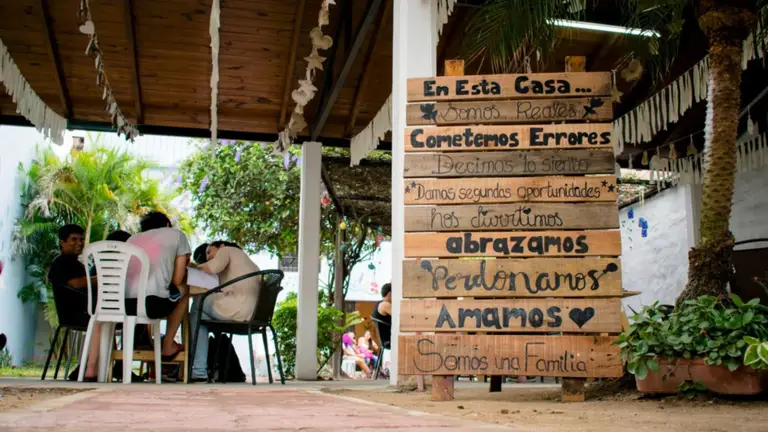 En Esta Casa...
Somos Reales
Cometemos Errores
Decimos lo siento
Damos segundas oportunidades
Nos divirtimos
abrazamos
Perdonamos
Amamos
Somos una Familia